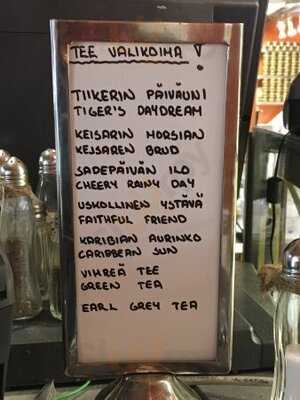 TEE VALIKOIMA !
TIIKERIN PÄIVÄUNI
TIGER'S DAYDREAM
KEISARIN MORSIAN
KEJSAREN BRUD
SADEPÄIVÄN ILO
CHEERY RAINY DAY
USKOLLINEN YSTÄVÄ
FAITHFUL FRIEND
KARIBIAN AURINKO
CARIBBEAN SUN
VIHREÄ TEE
GREEN TEA
EARL GREY TEA